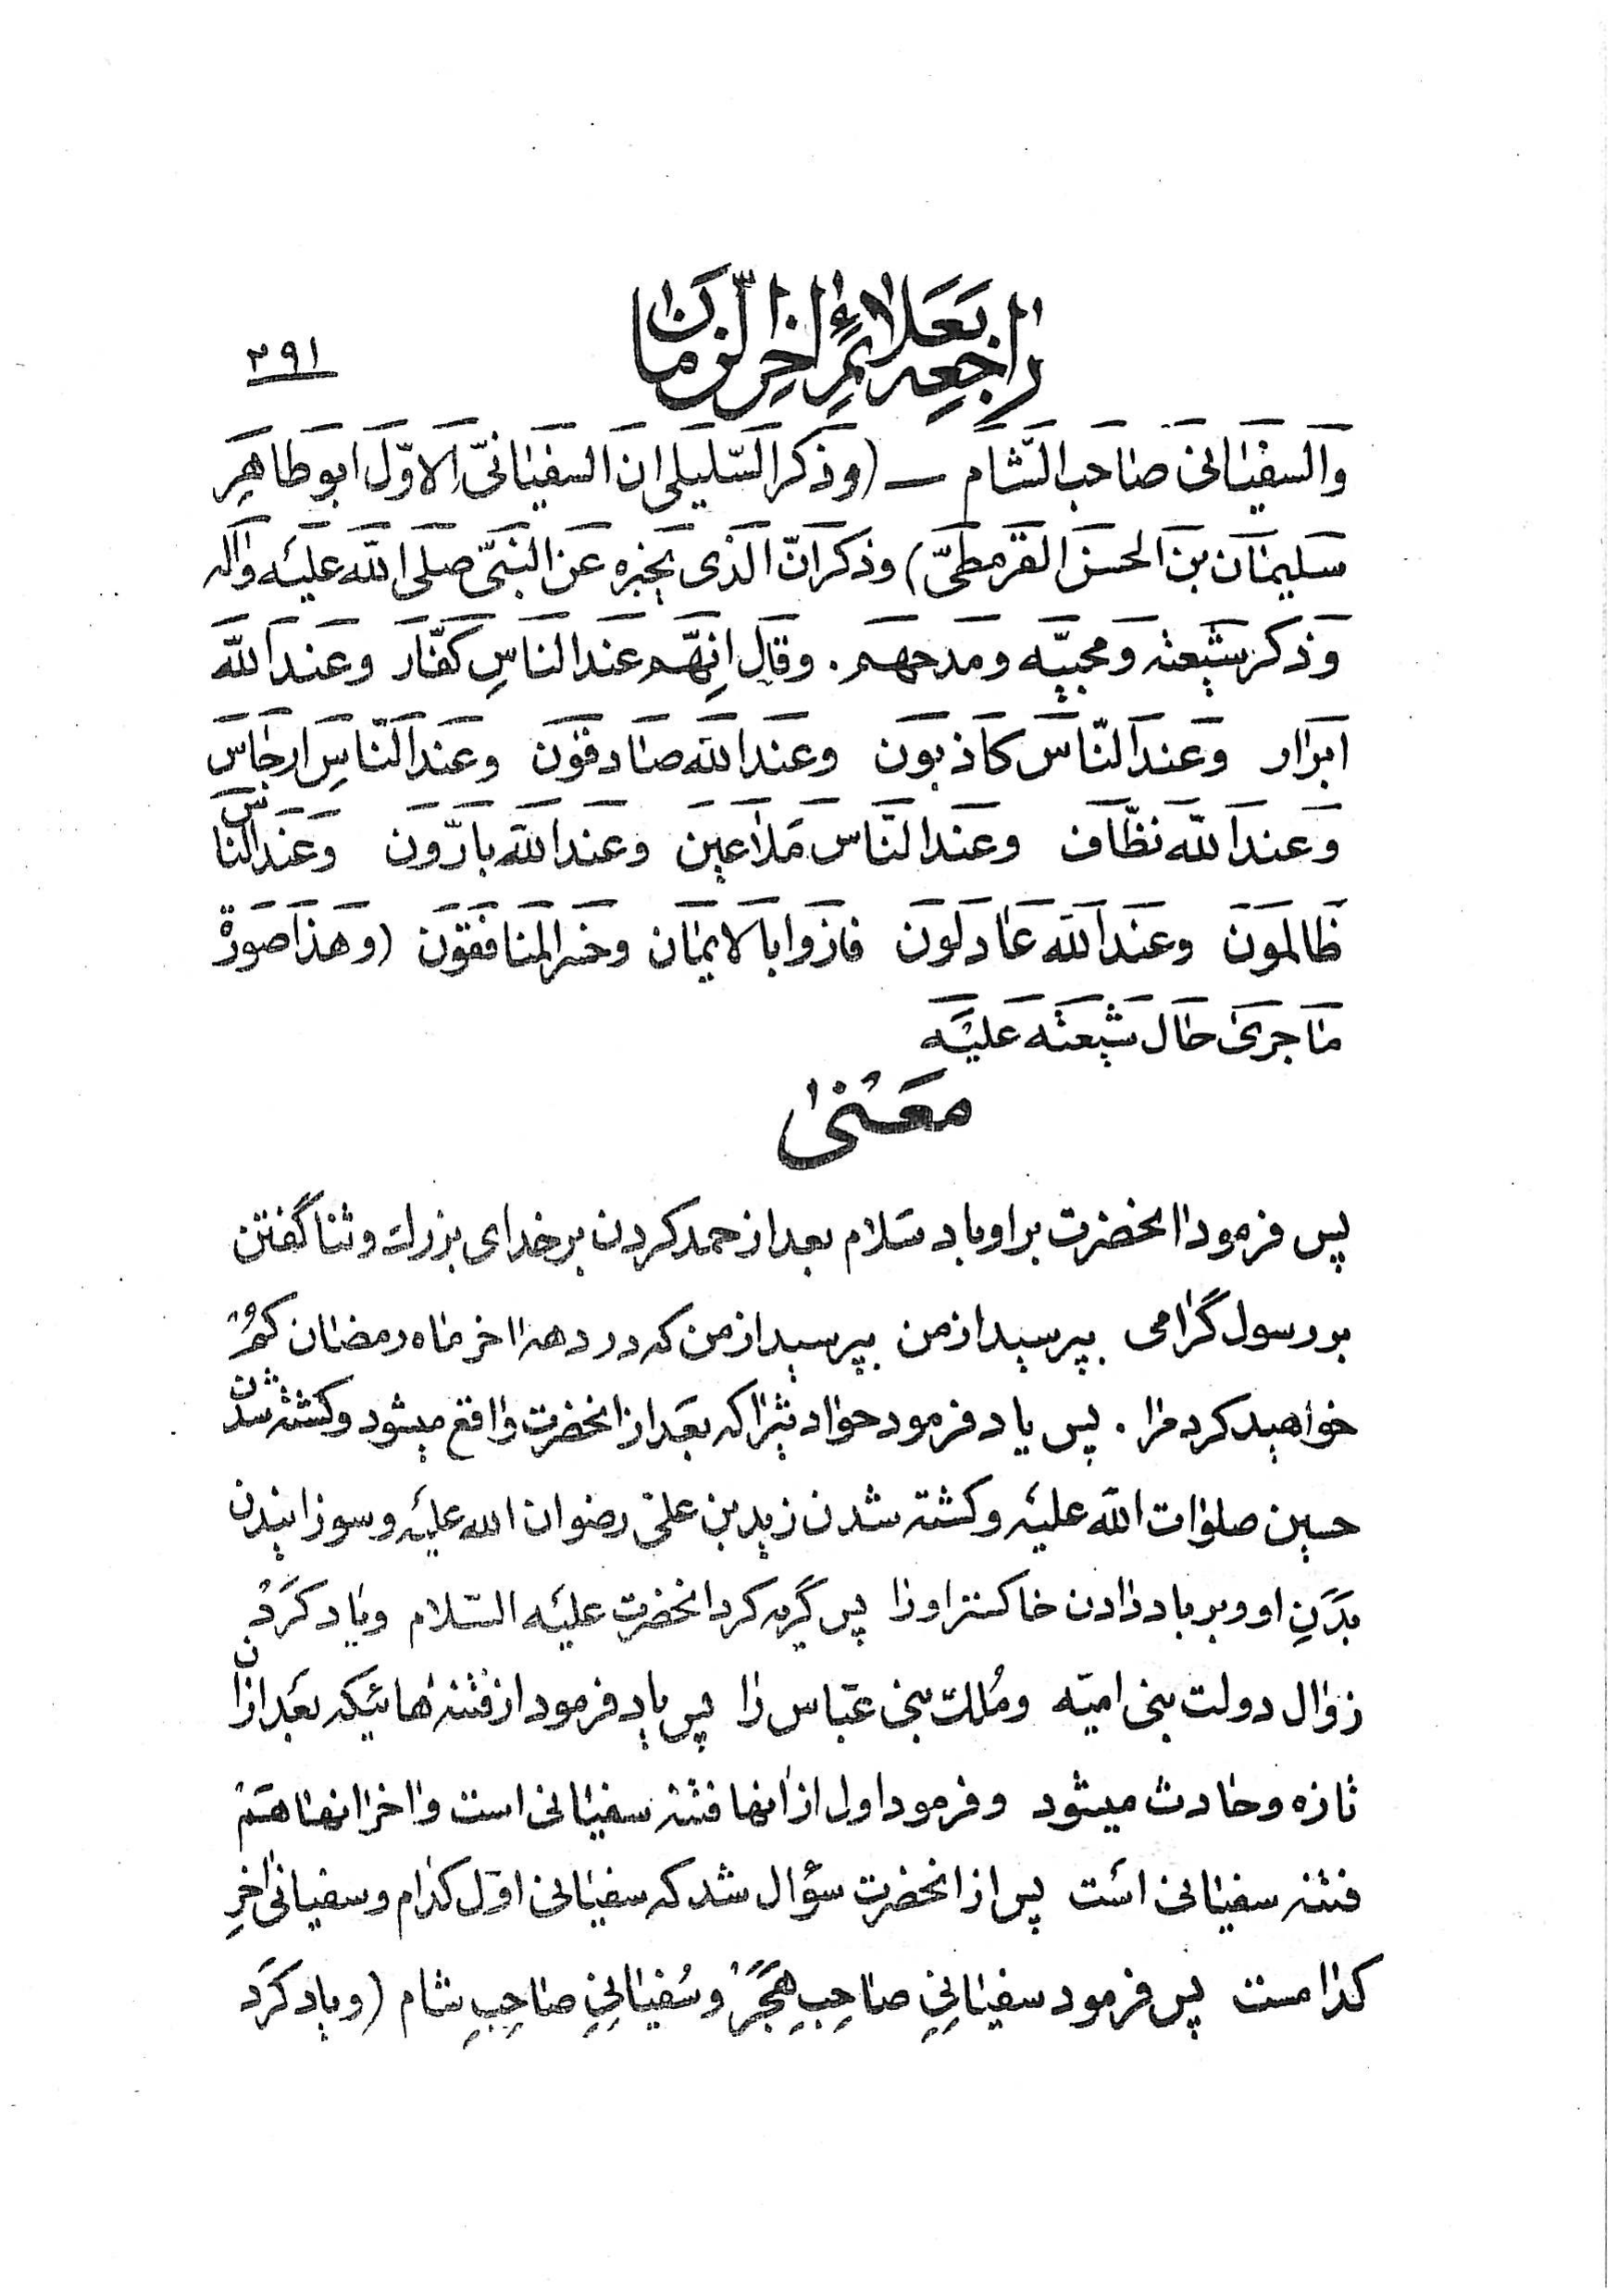 راجعه بعلائم اخر الزمان
٢٩١
والسفیانی صاحب الشام ــ (وذکر السّلیلی ان السفیانیّ الاوّل ابوطاهر
سلیمان بن الحسن القرمطیّ) وذکر انّ الذی یخبره عن النبیّ صلی الله علیه واله
وذکر شیعته ومحبیّه ومدحهم . وقال انِهّم عند الناسِ کفّار وعند الله
ابرار وعند النّاس کاذبون وعند الله صادقون وعند النّاسِ ارجاس
وعند الله نظّاف وعند النّاس ملاعین وعند الله بارّون وعند الناس
ظالمون وعند الله عادلون فازوا بالایمان وخسر المنافقون (وهذا صورة
ما جری حال شیعته علیه
معنی
پس فرمود انحضرت بر او باد سلام بعد از حمد کردن بر خدای بزرك و ثنا گفتن
بر رسول گرامی بپرسید از من بپرسید از من که در دههٔ اخر ماه رمضان گمُ
خواهید کرد مرا . پس یاد فرمود حوادثیرا که بعد از انحضرت واقع میشود و کشته شدن
حسین صلوات الله علیه و کشته شدن زید بن علی رضوان الله علیه و سوزانیدن
بدَنِ او و بر باد دادن خاکستر او را پس گریه کرد انحضرت علیه السّلام و یاد کردْ
زوال دولت بنی امیّه و مُلك بنی عبّاس را پس یاد فرمود از فتنه‌هائیکه بعد ازان
تازه و حادث میشود و فرمود اول از انها فتنه سفیانی است و اخر انها هَم
فتنه سفیانی است پس از انحضرت سؤال شد که سفیانی اوّل کدام و سفیانی اخرِ
کدامست پس فرمود سفیانیِ صاحِبِ هَجَرْ و سُفیانیِ صاحِبِ شام (و یاد کرد